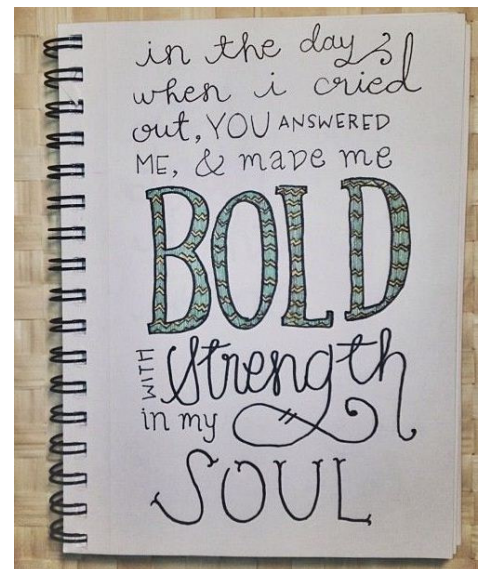 in the day
when i cried
out, YOU ANSWERED
ME, & made me
BOLD
WITH strength
in my
SOUL